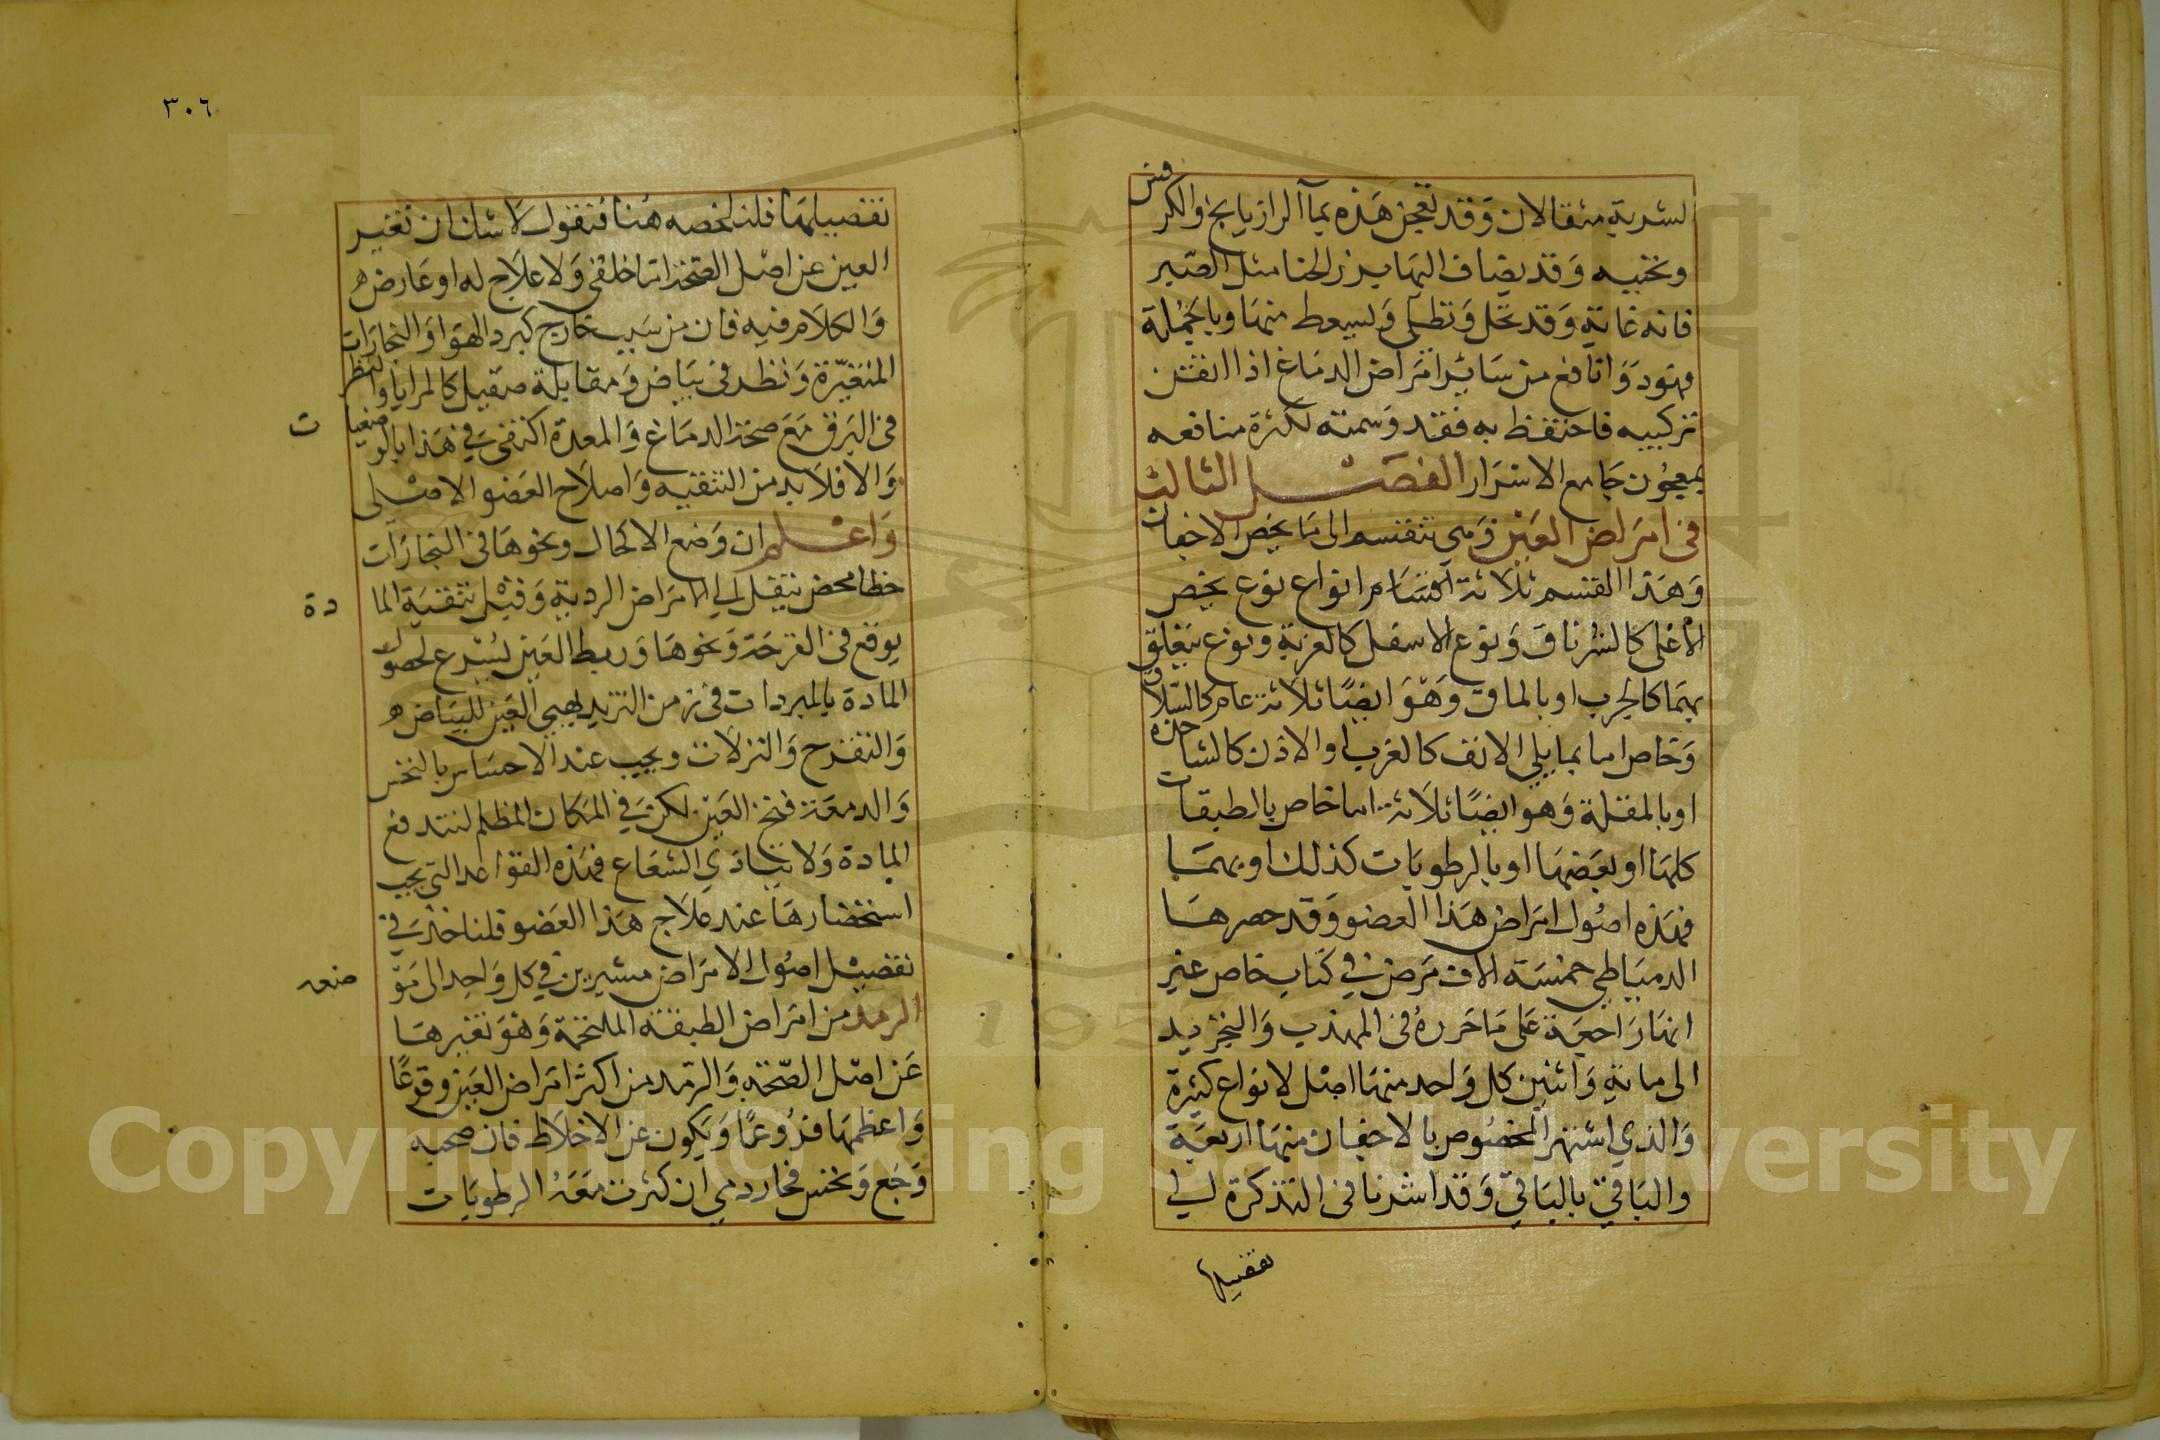 الشربة مثقالان وقد تعجن هذه بماء الرازيانج والكرفس
وتحببه وقد يضاف اليها بزر الحنا مثل الصبر
فانه غاية وقد تحل وتطلى ويسعط منها وبالجملة
فهو دواء نافع من سائر امراض الدماغ اذا اتقن
تركيبه فاحتفظ به فقد وسمته لكثرة منافعه
بمعجون جامع الاسرار الفصل الثالث
فى امراض العين وهي تنقسم الى ما يخص الاجفان
وهذا القسم ثلاثة اقسام انواع نوع يخص
الاعلى كالشرناق ونوع الاسفل كالغربة ونوع يتعلق
بهما كالجرب او بالماق وهو ايضًا ثلاثة عام كالسلاق
وخاص اما بما يلي الانف كالغرب او الاذن كالشا
او بالمقلة وهو ايضًا ثلاثة اما خاص بالطبقات
كلها او بعضها او بالرطوبات كذلك او بهما
فهذه اصول امراض هذا العضو وقد حصرها
الدمياطي خمسة الاف مرض في كتاب خاص غير
انها راجعة على ما حرره فى المهذب والتجريد
الى ماية واثنين كل واحد منها اصل لانواع كثيرة
والذي اشتهر المخصوص بالاجفان منها اربعة
والباقي بالباقي وقد اشرنا فى التذكرة الى
تفصيلها
٣٠٦
تفصيلها فلنلخصه هنا فنقول لا شك ان تغير
العين عن اصل الصحة اما خلقي ولا علاج له او عارض
والكلام فيه فان من سبب خارج كبرد الهوا والبخارات
المتغيرة ونظر فى بياض ومقابلة صقيل كالمرايا والنظر
فى البرق مع صحة الدماغ والمعدة اكتفى في هذا بالوضعيات
والا فلا بد من التنقيه واصلاح العضو الاصلى
واعلم ان وضع الاكحال ونحوها فى البخارات
خطا محض ينقل الى الامراض الردية وقبل تنقية المادة
يوقع فى القرحة ونحوها وربط العين يسرع لحصول
المادة بالمبردات فى زمن التزيد يهيي العين للبياض
والتقرح والنزلات ويجب عند الاحساس بالنخس
والدمعة فتح العين لكن في المكان المظلم لتندفع
المادة ولا يتاذى الشعاع فهذه القواعد التي يجب
استحضارها عند علاج هذا العضو فلناخذ في
تفصيل اصول الامراض مشيرين في كل واحد الى موضعه
الرمد من امراض الطبقة الملتحمة وهو تغيرها
عن اصل الصحة والرمد من اكثر امراض العين وقوعًا
واعظمها فروعًا ويكون عن الاخلاط فان صحبه
وجع ونخس فحار دمي ان كثرت معه الرطوبات
Copyright © King Saud University